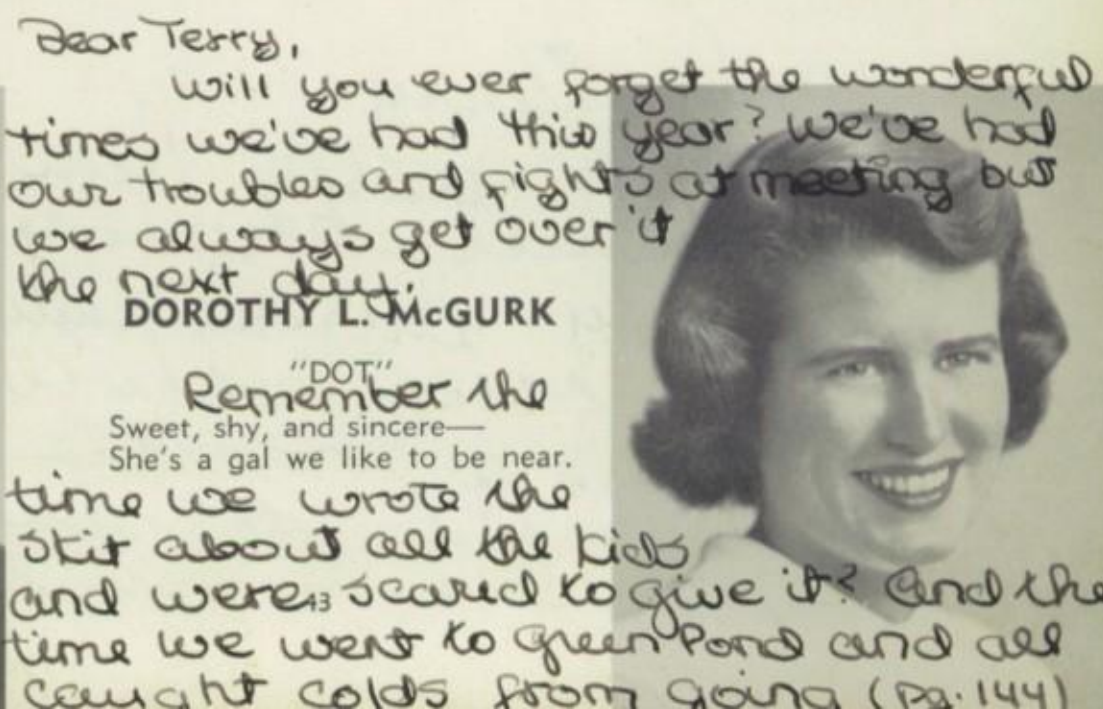 Dear Terry,
Will you ever forget the wonderful
times we've had this year? We've had
our troubles and fights at meeting but
we always get over it
the next day.
DOROTHY L. McGURK
"DOT"
Remember the
Sweet, shy, and sincere—
She's a gal we like to be near.
time we wrote the
skit about all the kids
and were scared to give it? And the
43
time we went to Green Pond and all
caught colds from going (pg. 144)